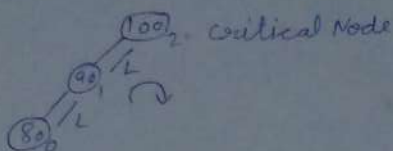 100 2 Critical Node
90 1 L
80 0 L